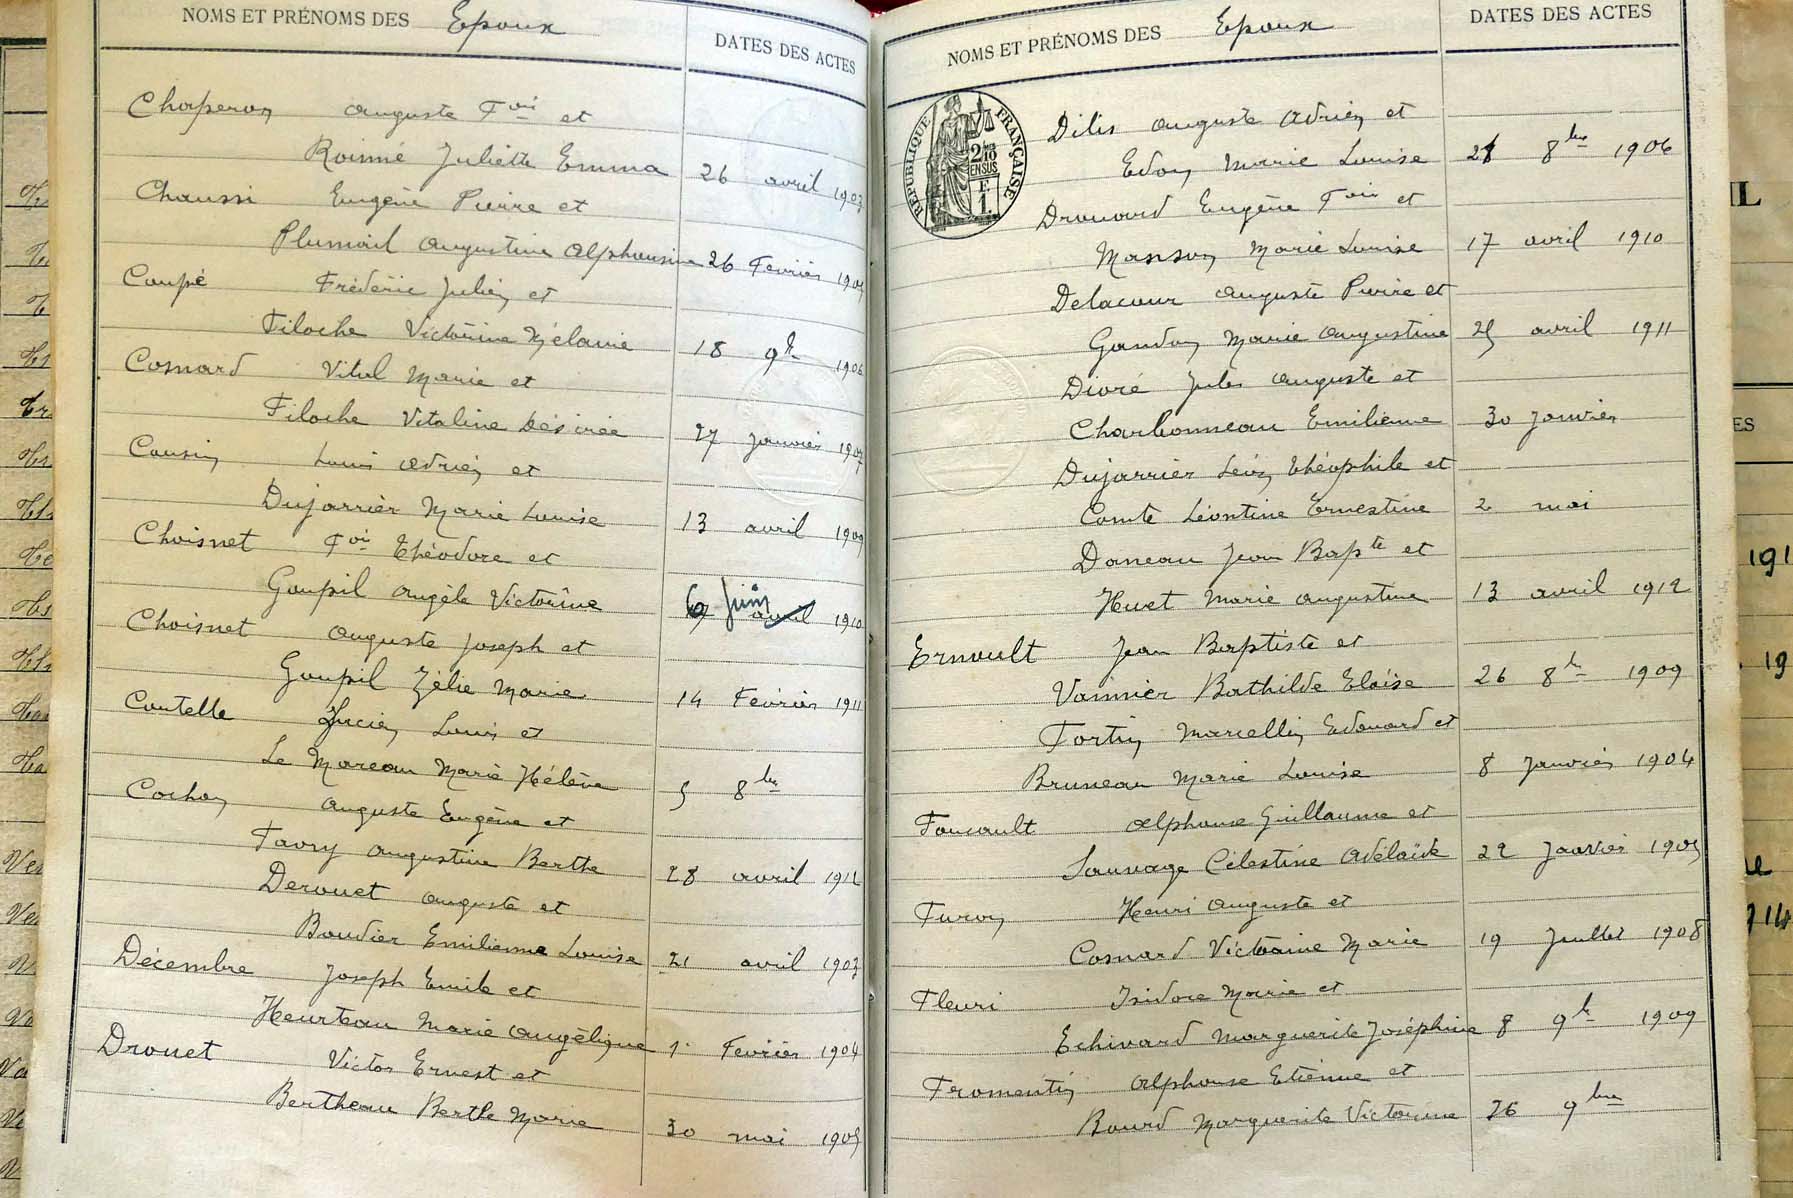 NOMS ET PRÉNOMS DES Epoux
DATES DES ACTES
Chaperon Auguste Fois et
Roinné Juliette Emma 26 avril 1903
Chaussi Eugène Pierre et
Plumail Augustine Alphonsine 26 Février
Coupé Frédéric Julien et
Filoche Victorine Mélanie 18 9bre 1906
Cosnard Vital Marie et
Filoche Vitaline Désirée 27 Janvier 1907
Cousin Louis Adrien et
Dujarrier Marie Louise 13 avril 1909
Choisnet Fois Théodore et
Goupil Angèle Victorine 6 Juin avril 1910
Choisnet Auguste Joseph et
Goupil Zélie Marie 14 Février 1911
Coutelle Lucien Louis et
Le Mareau Marie Hélène 5 8bre
Cochon Auguste Eugène et
Favry Augustine Berthe 28 avril 1912
Derouet Auguste et
Boudier Emilienne Louise 21 avril 1903
Décembre Joseph Emile et
Heurteau Marie Angélique 1er Février 1904
Drouet Victor Ernest et
Bertheau Berthe Marie 30 mai 1905
NOMS ET PRÉNOMS DES Epoux
DATES DES ACTES
RÉPUBLIQUE FRANÇAISE
2/10
EN SUS
F.
1.
Dilis Auguste Adrien et
Edon Marie Louise 21 8bre 1906
Drouard Eugène Fois et
Manson Marie Louise 17 avril 1910
Delacour Auguste Pierre et
Gandon Marie Augustine 25 avril 1911
Dioré Jules Auguste et
Charbonneau Emilienne 30 Janvier
Dujarrier Léon Théophile et
Comte Léontine Ernestine 2 mai
Daneau Jean Bapte et
Huet Marie Augustine 13 avril 1912
Ernoult Jean Baptiste et
Vannier Bathilde Eloïse 26 8bre 1909
Fortin Marcellin Edouard et
Bruneau Marie Louise 8 Janvier 1904
Foucault Alphonse Guillaume et
Sauvage Célestine Adélaïde 22 Janvier 1905
Furon Henri Auguste et
Cosnard Victorine Marie 19 Juillet 1908
Fleuri Isidore Marie et
Echivard Marguerite Joséphine 8 9bre 1909
Fromentin Alphonse Etienne et
Bourd Marguerite Victorine 26 9bre